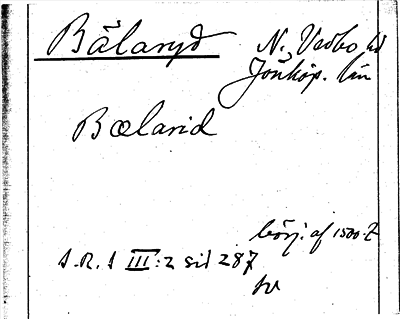 Bälaryd
N. Vedbo hd
Jönköp. län
Bælarid
börj. af 1500-t
S.R.S III:2 sid 287